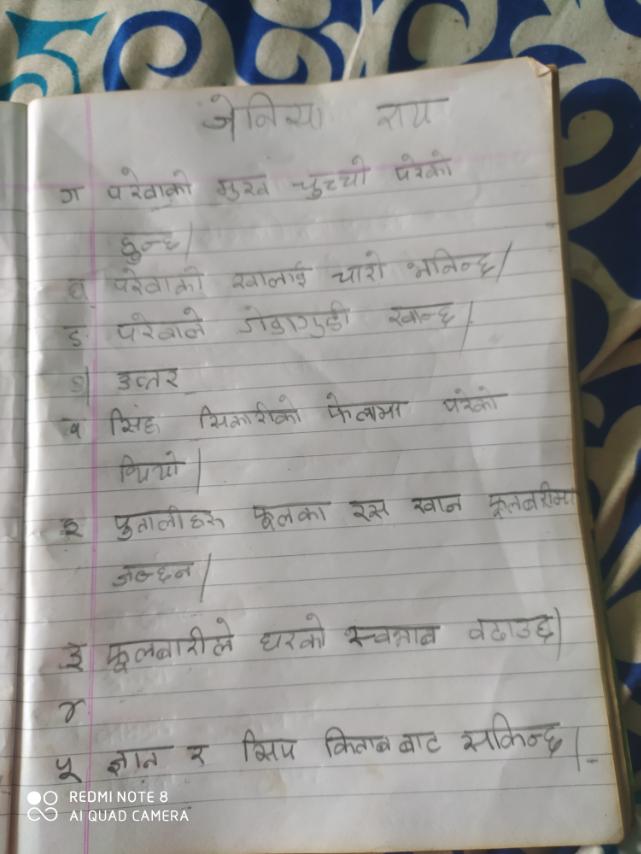 जेनिसा राय
ग परेवाको मुख चुच्चो परेको
हुन्छ।
घ परेवाको खालाई चारो भनिन्छ।
ङ परेवाले गेडागुडी खान्छ।
उत्तर
१ सिंह सिकारीको फेलामा परेको
थियो।
२ पुतालीहरु फूलका रस खान फूलबारीमा
जान्छन।
३ फूलबारीले घरको बढाउछ।
४
५ ज्ञान र सिप किताबबाट सकिन्छ।
REDMI NOTE 8
AI QUAD CAMERA